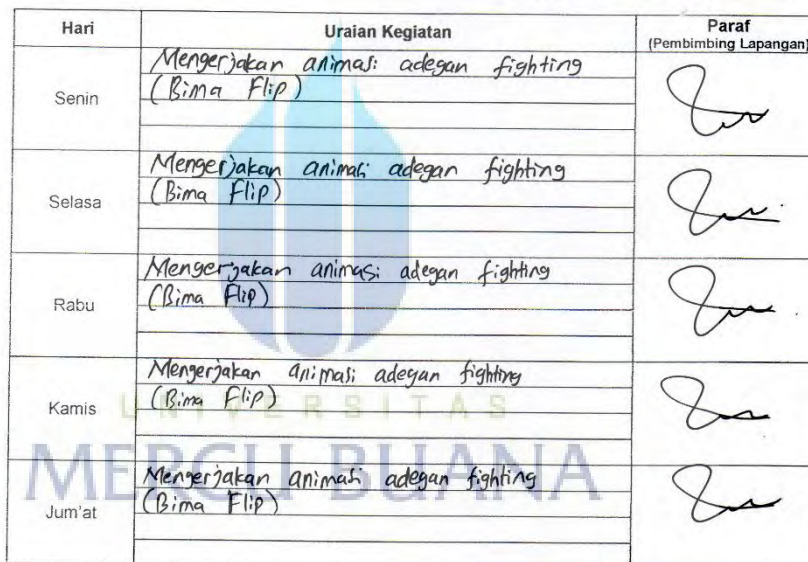 Hari Uraian Kegiatan Paraf
(Pembimbing Lapangan)
Senin
Mengerjakan animasi adegan fighting
(Bima Flip)
Selasa
Mengerjakan animasi adegan fighting
(Bima Flip)
Rabu
Mengerjakan animasi adegan fighting
(Bima Flip)
Kamis
Mengerjakan animasi adegan fighting
(Bima Flip)
UNIVERSITAS
MERCU BUANA
Jum'at
Mengerjakan animasi adegan fighting
(Bima Flip)